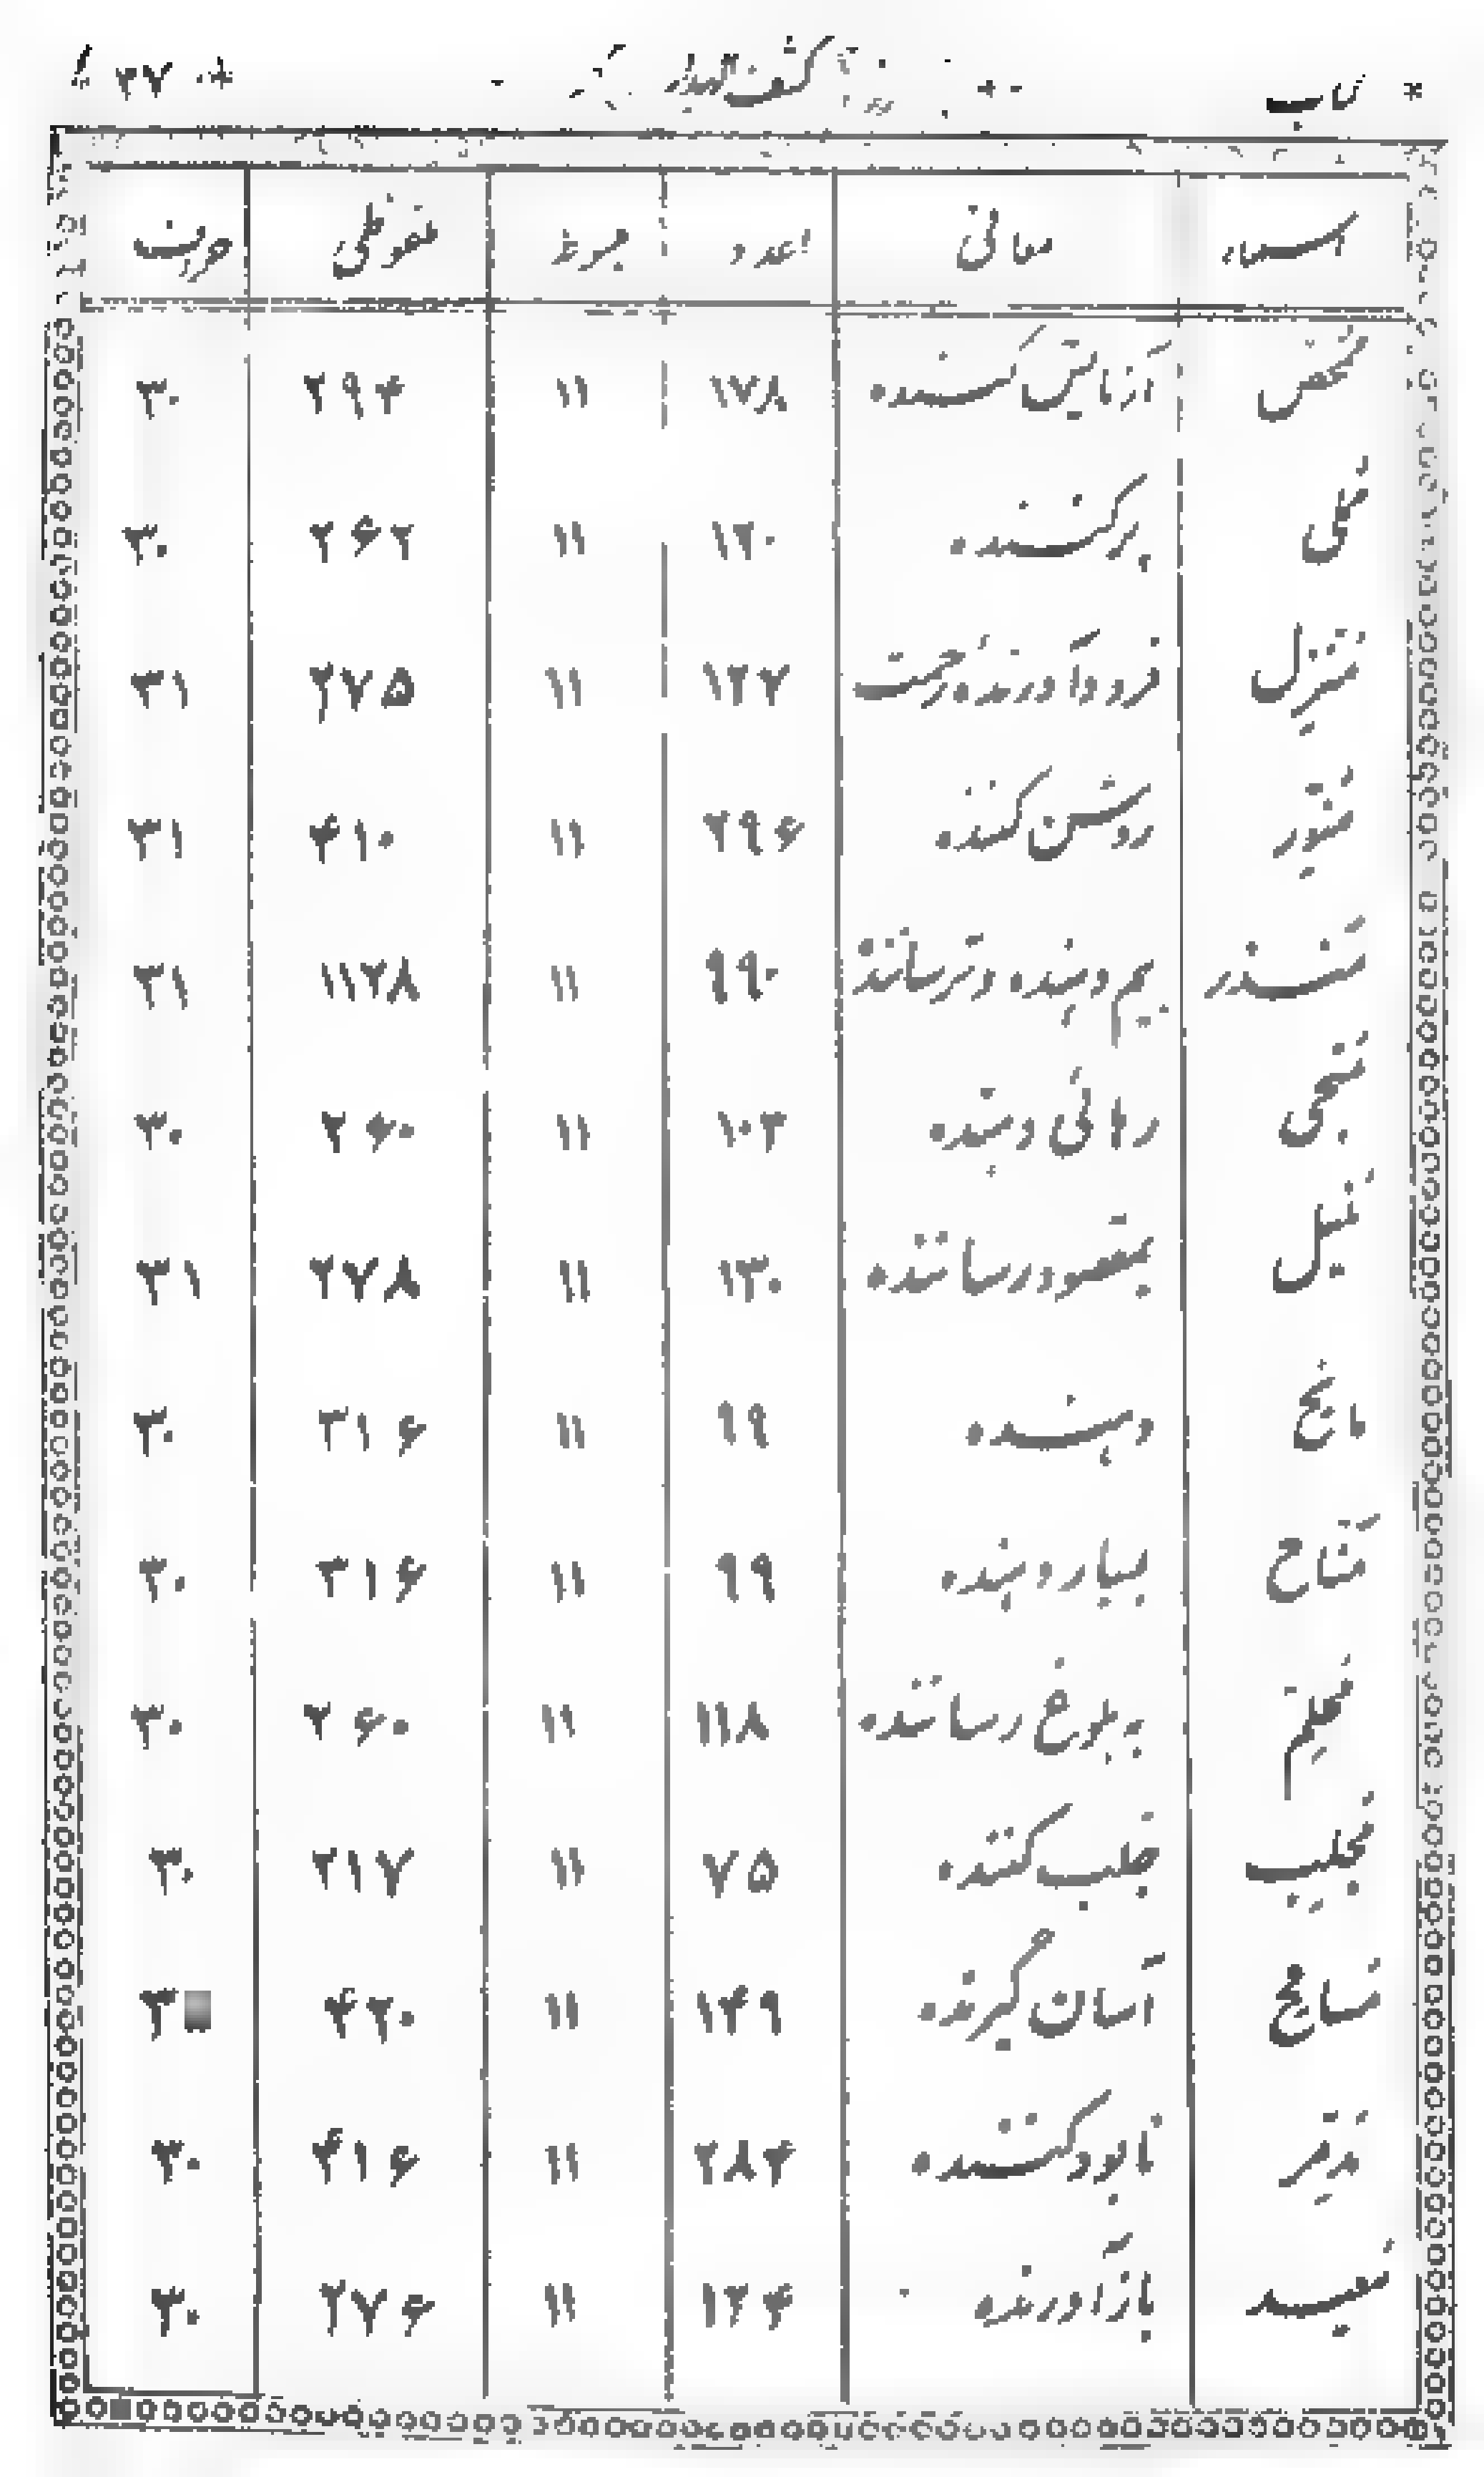 باب کشف الهدار ۳۷
اسماء معانی اعداد حروف ملفوظی حروف
ممحص آزمایش کننده ۱۷۸ ۱۱ ۲۹۴ ۳۰
مملی پرکننده ۱۲۰ ۱۱ ۲۶۲ ۳۰
منزل فرود آورندهٔ رحمت ۱۲۷ ۱۱ ۲۷۵ ۳۱
منور روشن کننده ۲۹۶ ۱۱ ۴۱۰ ۳۱
منذر بیم دهنده و ترسانند ۹۹۰ ۱۱ ۱۱۲۸ ۳۱
منجی رهائی دهنده ۱۰۳ ۱۱ ۲۶۰ ۳۰
منیل بمقصود رساننده ۱۳۰ ۱۱ ۲۷۸ ۳۱
مانح دهنده ۹۹ ۱۱ ۳۱۶ ۳۰
مناح بسیار دهنده ۹۹ ۱۱ ۳۱۶ ۳۰
محلم به بلوغ رساننده ۱۱۸ ۱۱ ۲۶۰ ۳۰
مجلب جلب کننده ۷۵ ۱۱ ۲۱۷ ۳۰
مسامح آسان گیرنده ۱۴۹ ۱۱ ۴۲۰ ۳
مدمر نابود کننده ۲۸۴ ۱۱ ۴۱۶ ۳۰
معید باز آورنده ۱۲۴ ۱۱ ۲۷۶ ۳۰